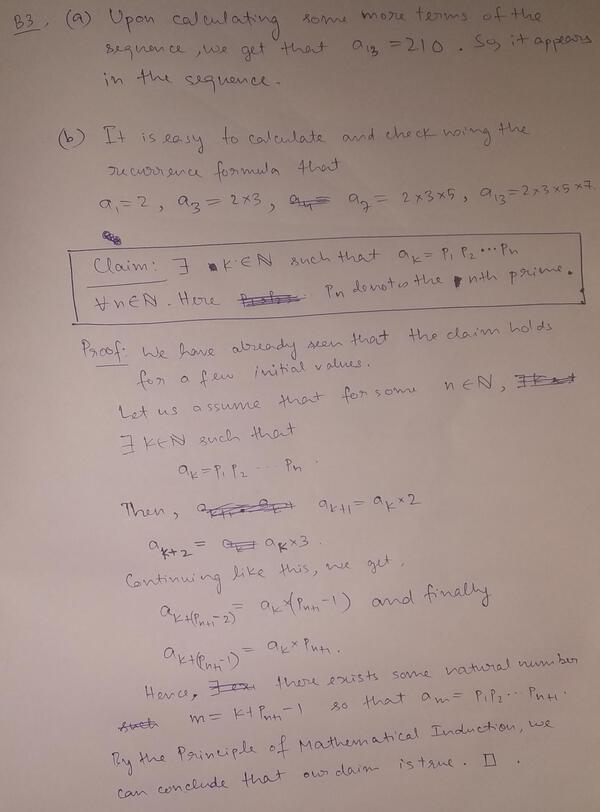 B3. (a) Upon calculating some more terms of the
sequence, we get that a₁₃ = 210. So, it appears
in the sequence.
(b) It is easy to calculate and check using the
recurrence formula that
a₁ = 2, a₃ = 2×3, a₇ = 2×3×5, a₁₃ = 2×3×5×7.
Claim: ∃ k ∈ ℕ such that aₖ = p₁ p₂ ⋯ pₙ
∀ n ∈ ℕ. Here pₙ denotes the nth prime.
Proof: We have already seen that the claim holds
for a few initial values.
Let us assume that for some n ∈ ℕ,
∃ k ∈ ℕ such that
aₖ = p₁ p₂ ⋯ pₙ.
Then, aₖ₊₁ = aₖ × 2
aₖ₊₂ = aₖ × 3.
Continuing like this, we get,
a_{k+(p_{n+1}-2)} = aₖ × (p_{n+1} - 1) and finally
a_{k+(p_{n+1}-1)} = aₖ × p_{n+1}.
Hence, there exists some natural number
m = k + p_{n+1} - 1 so that aₘ = p₁ p₂ ⋯ p_{n+1}.
By the Principle of Mathematical Induction, we
can conclude that our claim is true. □.